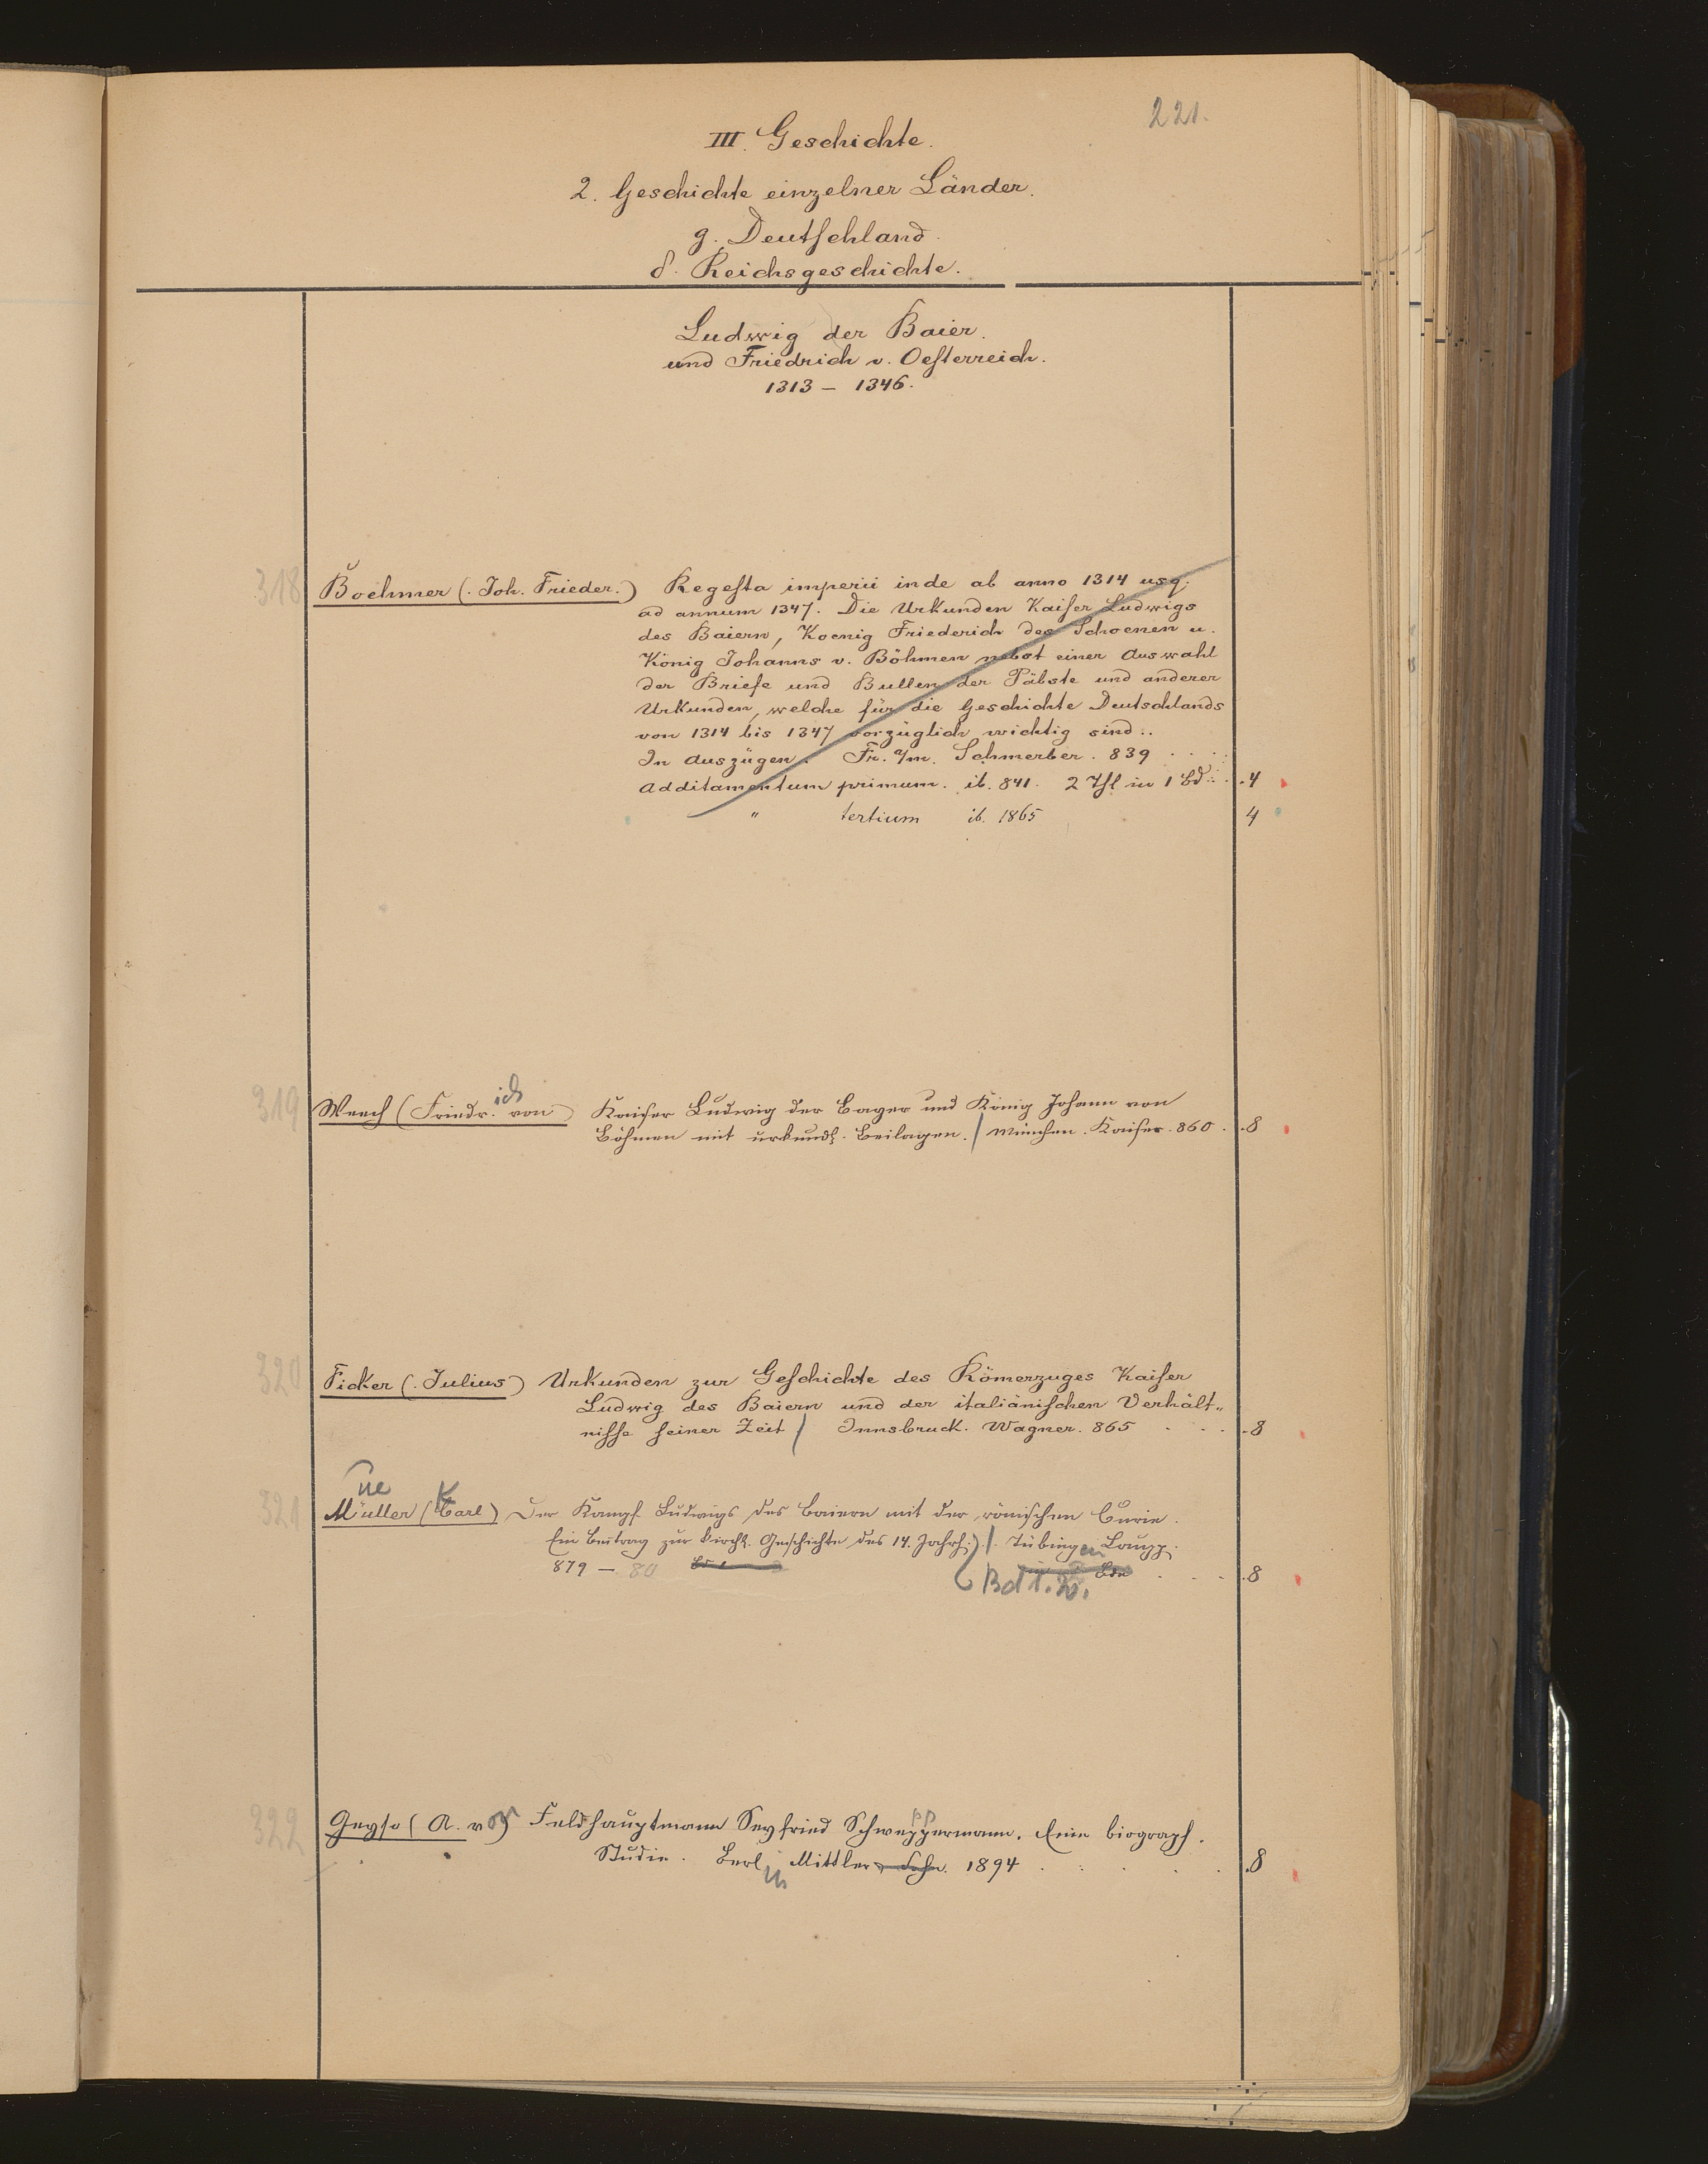 221.
III. Geschichte.
2. Geschichte einzelner Länder.
g. Deutschland.
δ. Reichsgeschichte.
Ludwig der Baier
und Friedrich v. Oesterreich.
1313 – 1346.
318 Boehmer (Joh. Frieder.) Regesta imperii inde ab anno 1314 usq.
ad annum 1347. Die Urkunden Kaiser Ludwigs
des Baiern, Koenig Friederich des Schoenen u.
König Johanns v. Böhmen nebst einer Auswahl
der Briefe und Bullen der Päbste und anderer
Urkunden, welche für die Geschichte Deutschlands
von 1314 bis 1347 vorzüglich wichtig sind..
In Auszügen. Fr. a/m. Schmerber. 839
Additamentum primum. ib. 841. 2 Thl in 1 Bd. 4
" tertium ib. 1865 4
319 Weech (Friedr.ich von) Kaiser Ludwig der Bayer und König Johann von
Böhmen mit urkundl. Beilagen. / München. Kaiser. 860. 8
320 Ficker (Julius) Urkunden zur Geschichte des Römerzuges Kaiser
Ludwig des Baiern und der italiänischen Verhält„
nisse seiner Zeit / Innsbruck. Wagner. 865 8
ue K
321 Müller (Carl) Der Kampf Ludwigs des Baiern mit der römischen Curie.
Ein Beitrag zur kirchl. Geschichte des 14. Jahrh.) /. Tübingen Laupp.
879 – 80 Bd 1. 2. 8
322 Geyso (A. von) Feldhauptmann Seyfried Schweppermann. Eine biograph.
Studie. Berlin Mittler u. Sohn. 1894 8